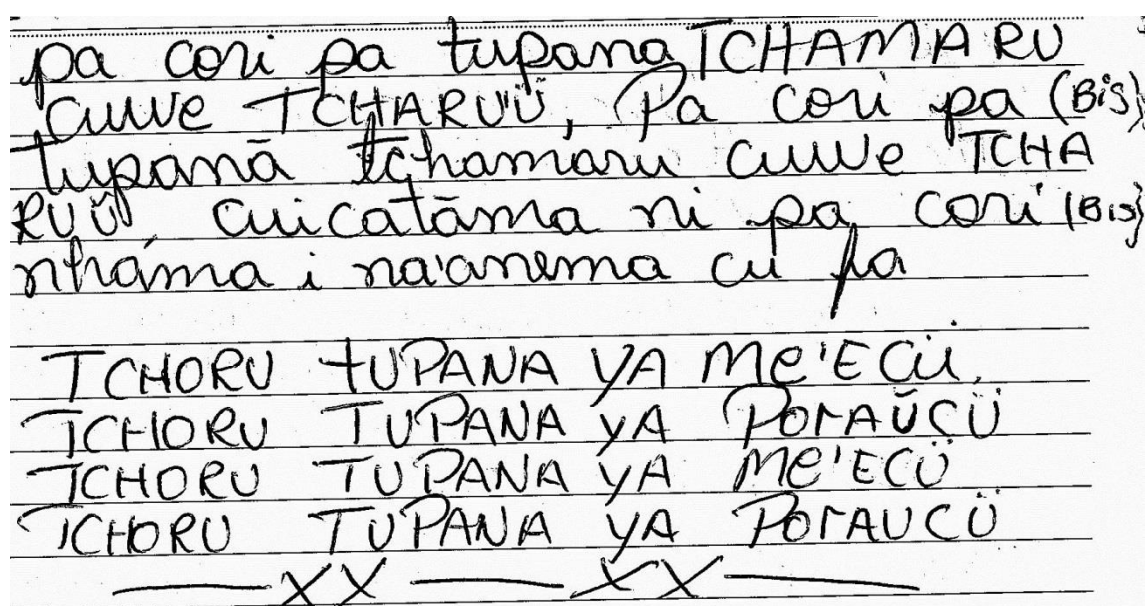 pa cori pa tupana TCHAMARU
cuwe TCHARUÜ, Pa cori pa (Bis)
tupanã tchamaru cuwe TCHA
RUÜ, cuicatãma ni pa cori (Bis)
nháma i na'anema cu pa
TCHORU tUPANA YA Me'ECü,
TCHORU TUPANA YA PorAŨCÜ
TCHORU TUPANA YA Me'ECÜ
TCHORU TUPANA YA PorAUCÜ
——XX——XX——